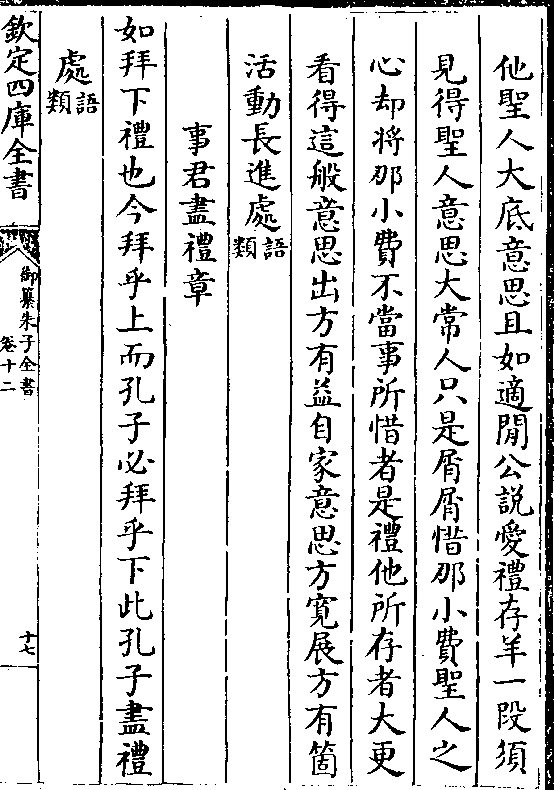 他聖人大底意思且如適閒公説愛禮存羊一段須
見得聖人意思大常人只是屑屑惜那小費聖人之
心却将那小費不當事所惜者是禮他所存者大更
看得這般意思出方有益自家意思方寛展方有箇
活動長進處語類
事君盡禮章
如拜下禮也今拜乎上而孔子必拜乎下此孔子盡禮
處語類
欽定四庫全書
御纂朱子全書
卷十二
十七